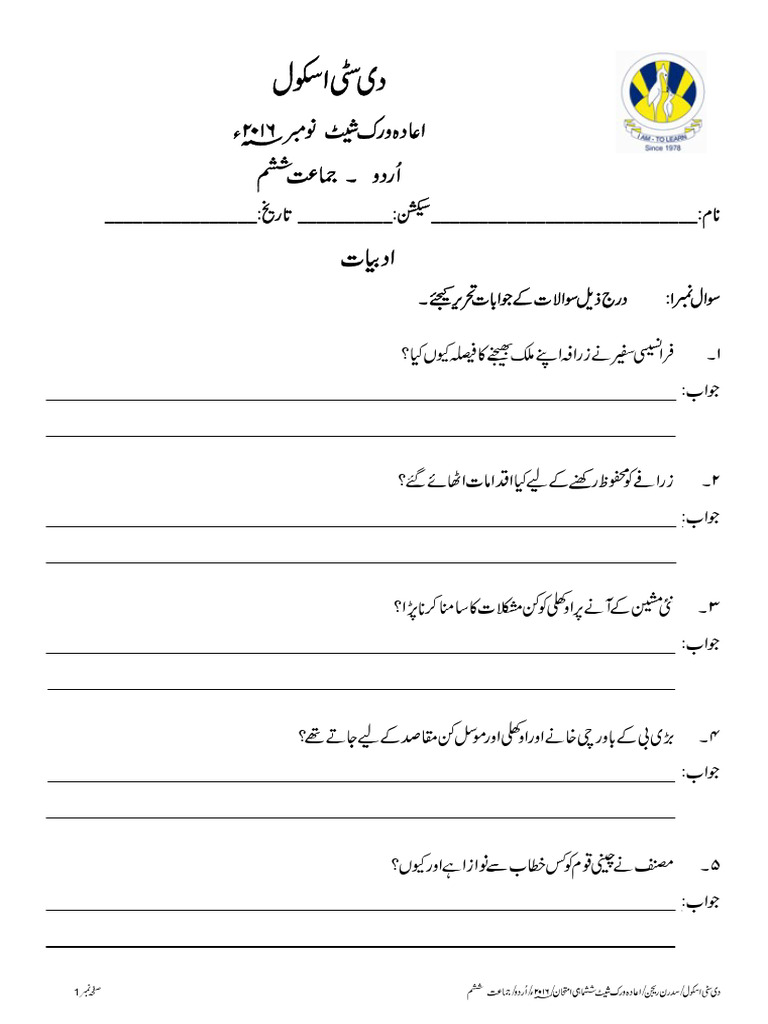 دی سٹی اسکول
I AM - TO LEARN
Since 1978
اعادہ ورک شیٹ نومبر ۲۰۱۶ء
اُردو ۔ جماعت ششم
نام:____________________________سیکشن:__________ تاریخ:________________
ادبیات
سوال نمبر۱: درج ذیل سوالات کے جوابات تحریر کیجئے ۔
۱۔ فرانسیسی سفیر نے زرافہ اپنے ملک بھیجنے کا فیصلہ کیوں کیا؟
جواب:
۲۔ زرافے کو محفوظ رکھنے کے لیے کیا اقدامات اٹھائے گئے؟
جواب:
۳۔ نئی مشین کے آنے پر اوکھلی کو کن مشکلات کا سامنا کرنا پڑا؟
جواب:
۴۔ بڑی بی کے باورچی خانے اور اوکھلی اور موسل کن مقاصد کے لیے جاتے تھے؟
جواب:
۵۔ مصنف نے چینی قوم کو کس خطاب سے نوازا ہے اور کیوں؟
جواب:
دی سٹی اسکول/سدرن ریجن/اعادہ ورک شیٹ ششماہی امتحان/۲۰۱۶ء/اُردو/جماعت ششم صفحہ نمبر1